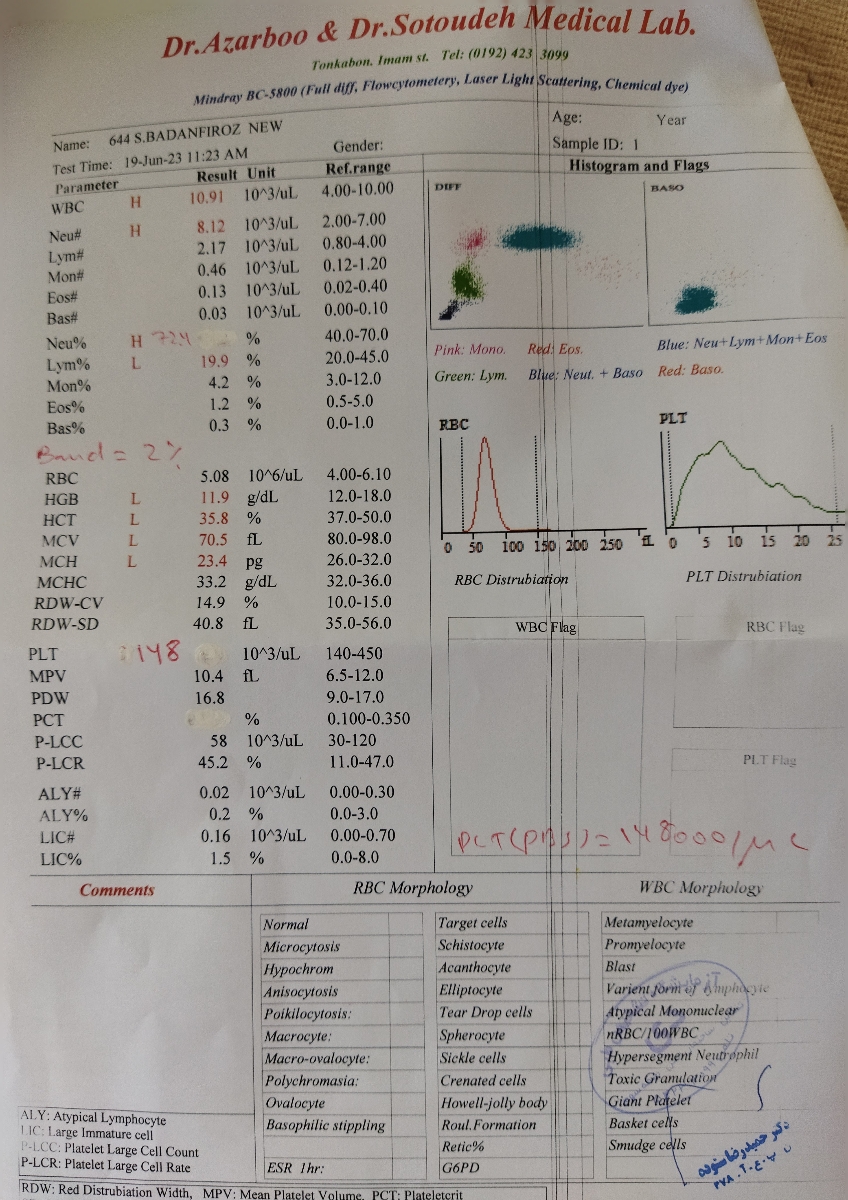 Dr.Azarboo & Dr.Sotoudeh Medical Lab.
Tonkabon. Imam st. Tel: (0192) 423 3099
Mindray BC-5800 (Full diff, Flowcytometery, Laser Light Scattering, Chemical dye)
Name: 644 S.BADANFIROZ NEW Age: Year
Test Time: 19-Jun-23 11:23 AM Gender: Sample ID: 1
Parameter Result Unit Ref.range Histogram and Flags
WBC H 10.91 10^3/uL 4.00-10.00
Neu# H 8.12 10^3/uL 2.00-7.00
Lym# 2.17 10^3/uL 0.80-4.00
Mon# 0.46 10^3/uL 0.12-1.20
Eos# 0.13 10^3/uL 0.02-0.40
Bas# 0.03 10^3/uL 0.00-0.10
Neu% H % 40.0-70.0
Lym% L 19.9 % 20.0-45.0
Mon% 4.2 % 3.0-12.0
Eos% 1.2 % 0.5-5.0
Bas% 0.3 % 0.0-1.0
Band = 2%
RBC 5.08 10^6/uL 4.00-6.10
HGB L 11.9 g/dL 12.0-18.0
HCT L 35.8 % 37.0-50.0
MCV L 70.5 fL 80.0-98.0
MCH L 23.4 pg 26.0-32.0
MCHC 33.2 g/dL 32.0-36.0
RDW-CV 14.9 % 10.0-15.0
RDW-SD 40.8 fL 35.0-56.0
PLT 148 10^3/uL 140-450
MPV 10.4 fL 6.5-12.0
PDW 16.8 9.0-17.0
PCT % 0.100-0.350
P-LCC 58 10^3/uL 30-120
P-LCR 45.2 % 11.0-47.0
ALY# 0.02 10^3/uL 0.00-0.30
ALY% 0.2 % 0.0-3.0
LIC# 0.16 10^3/uL 0.00-0.70
LIC% 1.5 % 0.0-8.0
DIFF BASO
Pink: Mono. Red: Eos. Blue: Neu+Lym+Mon+Eos
Green: Lym. Blue: Neut. + Baso Red: Baso.
RBC PLT
0 50 100 150 200 250 fL 0 5 10 15 20 25
RBC Distrubiation PLT Distrubiation
WBC Flag RBC Flag
PLT Flag
PLT(PBS)=148000/μL
Comments RBC Morphology WBC Morphology
Normal Target cells Metamyelocyte
Microcytosis Schistocyte Promyelocyte
Hypochrom Acanthocyte Blast
Anisocytosis Elliptocyte Varient form of lymphocyte
Poikilocytosis: Tear Drop cells Atypical Mononuclear
Macrocyte: Spherocyte nRBC/100WBC
Macro-ovalocyte: Sickle cells Hypersegment Neutrophil
Polychromasia: Crenated cells Toxic Granulation
Ovalocyte Howell-jolly body Giant Platelet
Basophilic stippling Roul.Formation Basket cells
Retic% Smudge cells
ESR 1hr: G6PD
ALY: Atypical Lymphocyte
LIC: Large Immature cell
P-LCC: Platelet Large Cell Count
P-LCR: Platelet Large Cell Rate
دکتر حمیدرضا ستوده
RDW: Red Distrubiation Width, MPV: Mean Platelet Volume, PCT: Plateletcrit